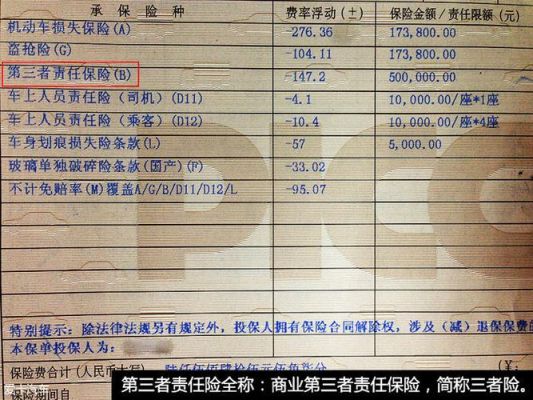 承保险种 费率浮动(±) 保险金额/责任限额(
机动车损失保险(A) -276.36 173,800.00
盗抢险(G) -104.11 173,800.00
第三者责任保险(B) -147.2 500,000.00
车上人员责任险(司机)(D11) -4.1 10,000.00/座*1座
车上人员责任险(乘客)(D12) -10.4 10,000.00/座*4座
车身划痕损失险条款(L) -57 5,000.00
玻璃单独破碎险条款(国产)(F) -33.02
不计免赔率(M)覆盖A/G/B/D11/D12/L -95.07
PICC
特别提示：除法律法规另有规定外，投保人拥有保险合同解除权，涉及（减）退保保费的
本保单投保人为：
保险费合计（人民币大写） (¥:
保险期间自
第三者责任险全称：商业第三者责任保险，简称三者险。